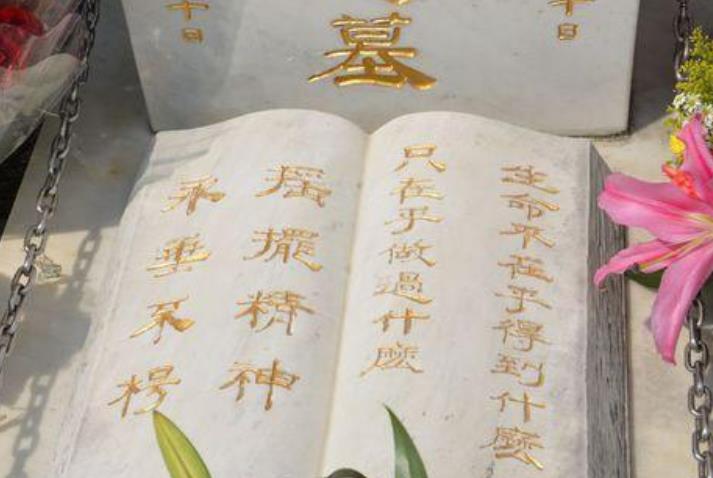 十日
墓
十日
生命不在乎得到什麼
只在乎做過什麼
搖擺精神
永垂不朽